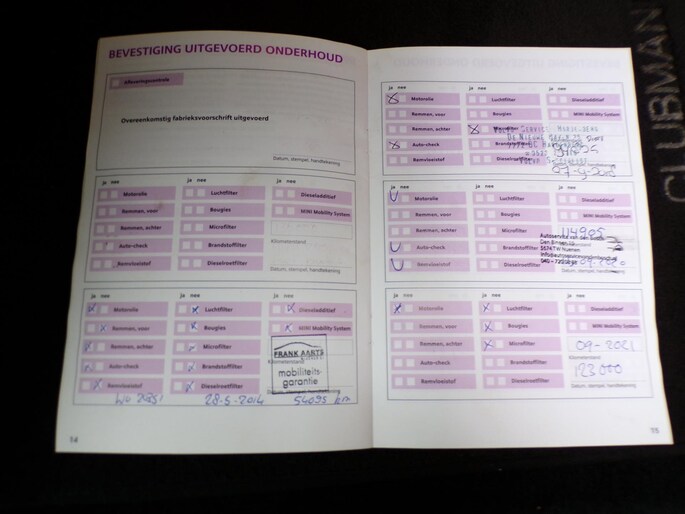 BEVESTIGING UITGEVOERD ONDERHOUD
Afleveringscontrole
Overeenkomstig fabrieksvoorschrift uitgevoerd
Datum, stempel, handtekening
ja nee ja nee ja nee
Motorolie Luchtfilter Dieseladditief
Remmen, voor Bougies MINI Mobility System
Remmen, achter Microfilter
Auto-check Brandstoffilter Kilometerstand
Remvloeistof Dieselroetfilter Datum, stempel, handtekening
ja nee ja nee ja nee
Motorolie Luchtfilter Dieseladditief
Remmen, voor Bougies MINI Mobility System
Remmen, achter Microfilter
FRANK AARTS
Auto-check Brandstoffilter
mobiliteits-
garantie
Remvloeistof Dieselroetfilter
28-5-2014 54095 km
14
ja nee ja nee ja nee
Motorolie Luchtfilter Dieseladditief
Remmen, voor Bougies MINI Mobility System
Remmen, achter Microfilter
Auto-check
Remvloeistof Dieselroetfilter
Datum, stempel, handtekening
ja nee ja nee ja nee
Motorolie Luchtfilter Dieseladditief
Remmen, voor Bougies MINI Mobility System
Remmen, achter Microfilter 114905
Auto-check Brandstoffilter
Remvloeistof Dieselroetfilter
Datum, stempel, handtekening
ja nee ja nee ja nee
Motorolie Luchtfilter Dieseladditief
Remmen, voor Bougies MINI Mobility System
Remmen, achter Microfilter 09-2021
Kilometerstand
Auto-check Brandstoffilter 123000
Remvloeistof Dieselroetfilter Datum, stempel, handtekening
15
CLUBMAN